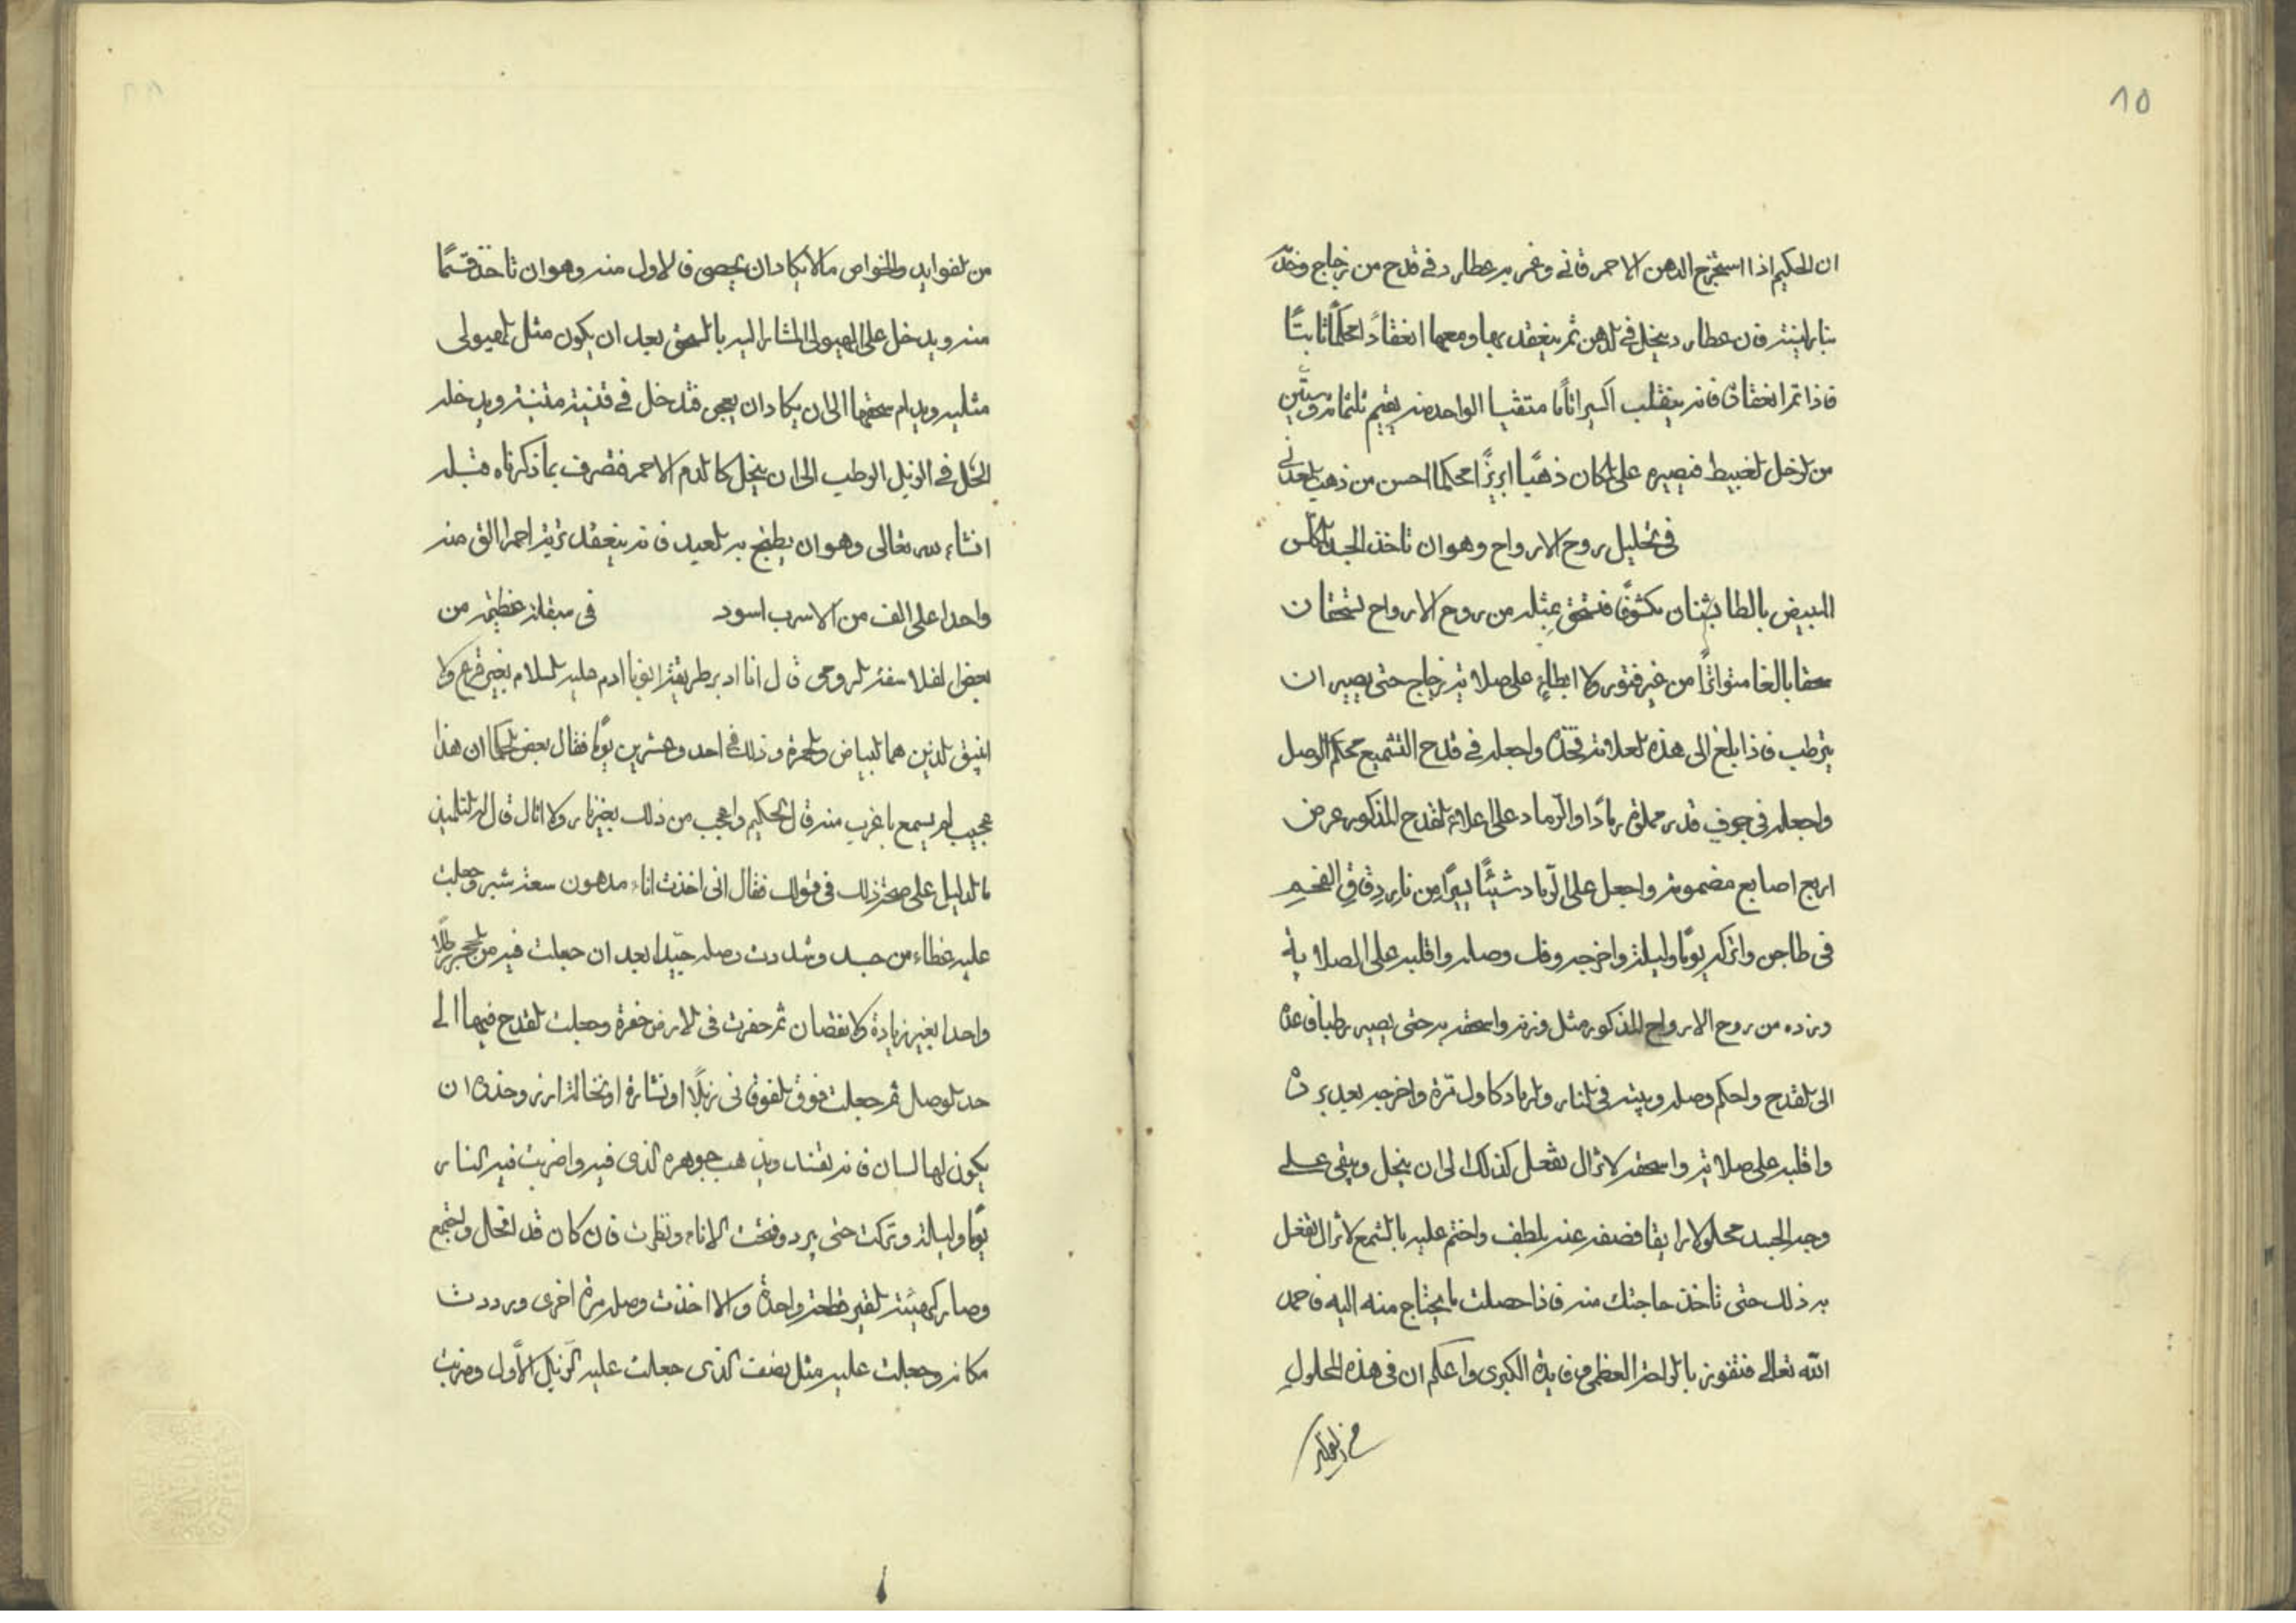 ١٥
ان الحكيم اذا استخرج الدهن الاحمر قانى وغمر به عطارد فى قدح من زجاج وخد
بنار لينة فان عطارد ينحل فى الدهن ثم ينعقد بها ومعها انعقادًا محكمًا ثابتًا
فاذا تم انعقاده فانه ينقلب اكسيرا تامًا متقنيا الواحد منه يقيم ثلثمائة وستين
من الزحل الغبيط فيصيره على المكان ذهبًا ابريزًا محكما احسن من ذهب المعدنى
فى تحليل روح الارواح وهو ان تاخذ الجسد المكلس
المبيض بالطابشنان مكثوفًا فتسحق بمثله من روح الارواح تسحقان
سحقا بالغا متواترًا من غير فتور ولا ابطاء على صلاية زجاج حتى يصير ان
يترطب فاذا بلغ الى هذه العلامة فخذه واجعله فى قدح التشميع محكم الوصل
واجعله فى جوف قدر مملوة رمادًا والرماد على اعلاء القدح المذكور عرض
اربع اصابع مضمومة واجعل على الرماد شيئًا يسيرًا من نار دقاق الفحم
فى طاجن واتركه يومًا وليلة واخرجه وفك وصله واقلبه على الصلاية
وزده من روح الارواح المذكور مثل وزنه واسحقه به حتى يصير رطبا فاعده
الى القدح واحكم وصله وبيته فى النار والرماد كاول مرة واخرجه بعد برده
واقلبه على صلاية واسحقه لا تزال تفعل كذلك الى ان ينحل ويبقى على
وجه الجسد محلولا رايقا فصفه عنه بلطف واختم عليه بالشمع لا تزال تفعل
به ذلك حتى تاخذ حاجتك منه فاذا حصلت ما يحتاج منه اليه فاحمد
الله تعالى فتفوز بالراحة العظمى وفايدة الكبرى واعلم ان فى هذه المحلول
من الفوايد
من الفوايد والخواص ما لا يكاد ان يحصى فالاول منه وهو ان تاخذ قسمًا
منه ويدخل على الهيولى المشار اليه بالسحق بعد ان يكون مثل الهيولى
مثليه ويدام سحقها الى ان يكاد ان يعجى فتدخل فى قنينة متينة ويدخله
الحل فى الزبل الرطب الى ان ينحل كالدم الاحمر فتصرف بما ذكرناه قبله
انشاء الله تعالى وهو ان يطبخ به العبد فانه ينعقد تربة احمرا الق منه
واحدا على الف من الاسرب اسود فى سقلة عظيمة من
بعض الفلاسفة الروحى قال انا ادبر طريقة ابونا ادم عليه السلام بغير قرع ولا
انبيق الذين هما البياض والحمرة وذلك فى احد وعشرين يومًا فقال بعض الحكما ان هذا
عجيب لم يسمع باغرب منه قال الحكيم واعجب من ذلك بغير نار ولا اثال قال له التلميذ
ما الدليل على صحة ذلك فى قولك فقال انى اخذت اناء مدهون سعته شبر وجعلت
عليه غطاء من جسد وشددت وصله جيدا بعد ان جعلت فيه من الحجر رطلًا
واحدا بغير زيادة ولا نقصان ثم حفرت فى الارض حفرة وجعلت القدح فيها الى
حد الوصل ثم جعلت فوق الفوقانى زبلًا او نشارة او نخالة ارز وحذره ان
يكون لها لسان فانه يفسد ويذهب جوهره الذى فيه واضربت فيه النار
يومًا وليلة وتركت حتى برد وفتحت الاناء ونظرت فان كان قد انحل واجتمع
وصار كهيئة القير قطعة واحدة والا اخذت وصله مرة اخرى ورددت
مكانه وجعلت عليه مثل نصف الذى جعلت عليه الزبل الاول وضربت